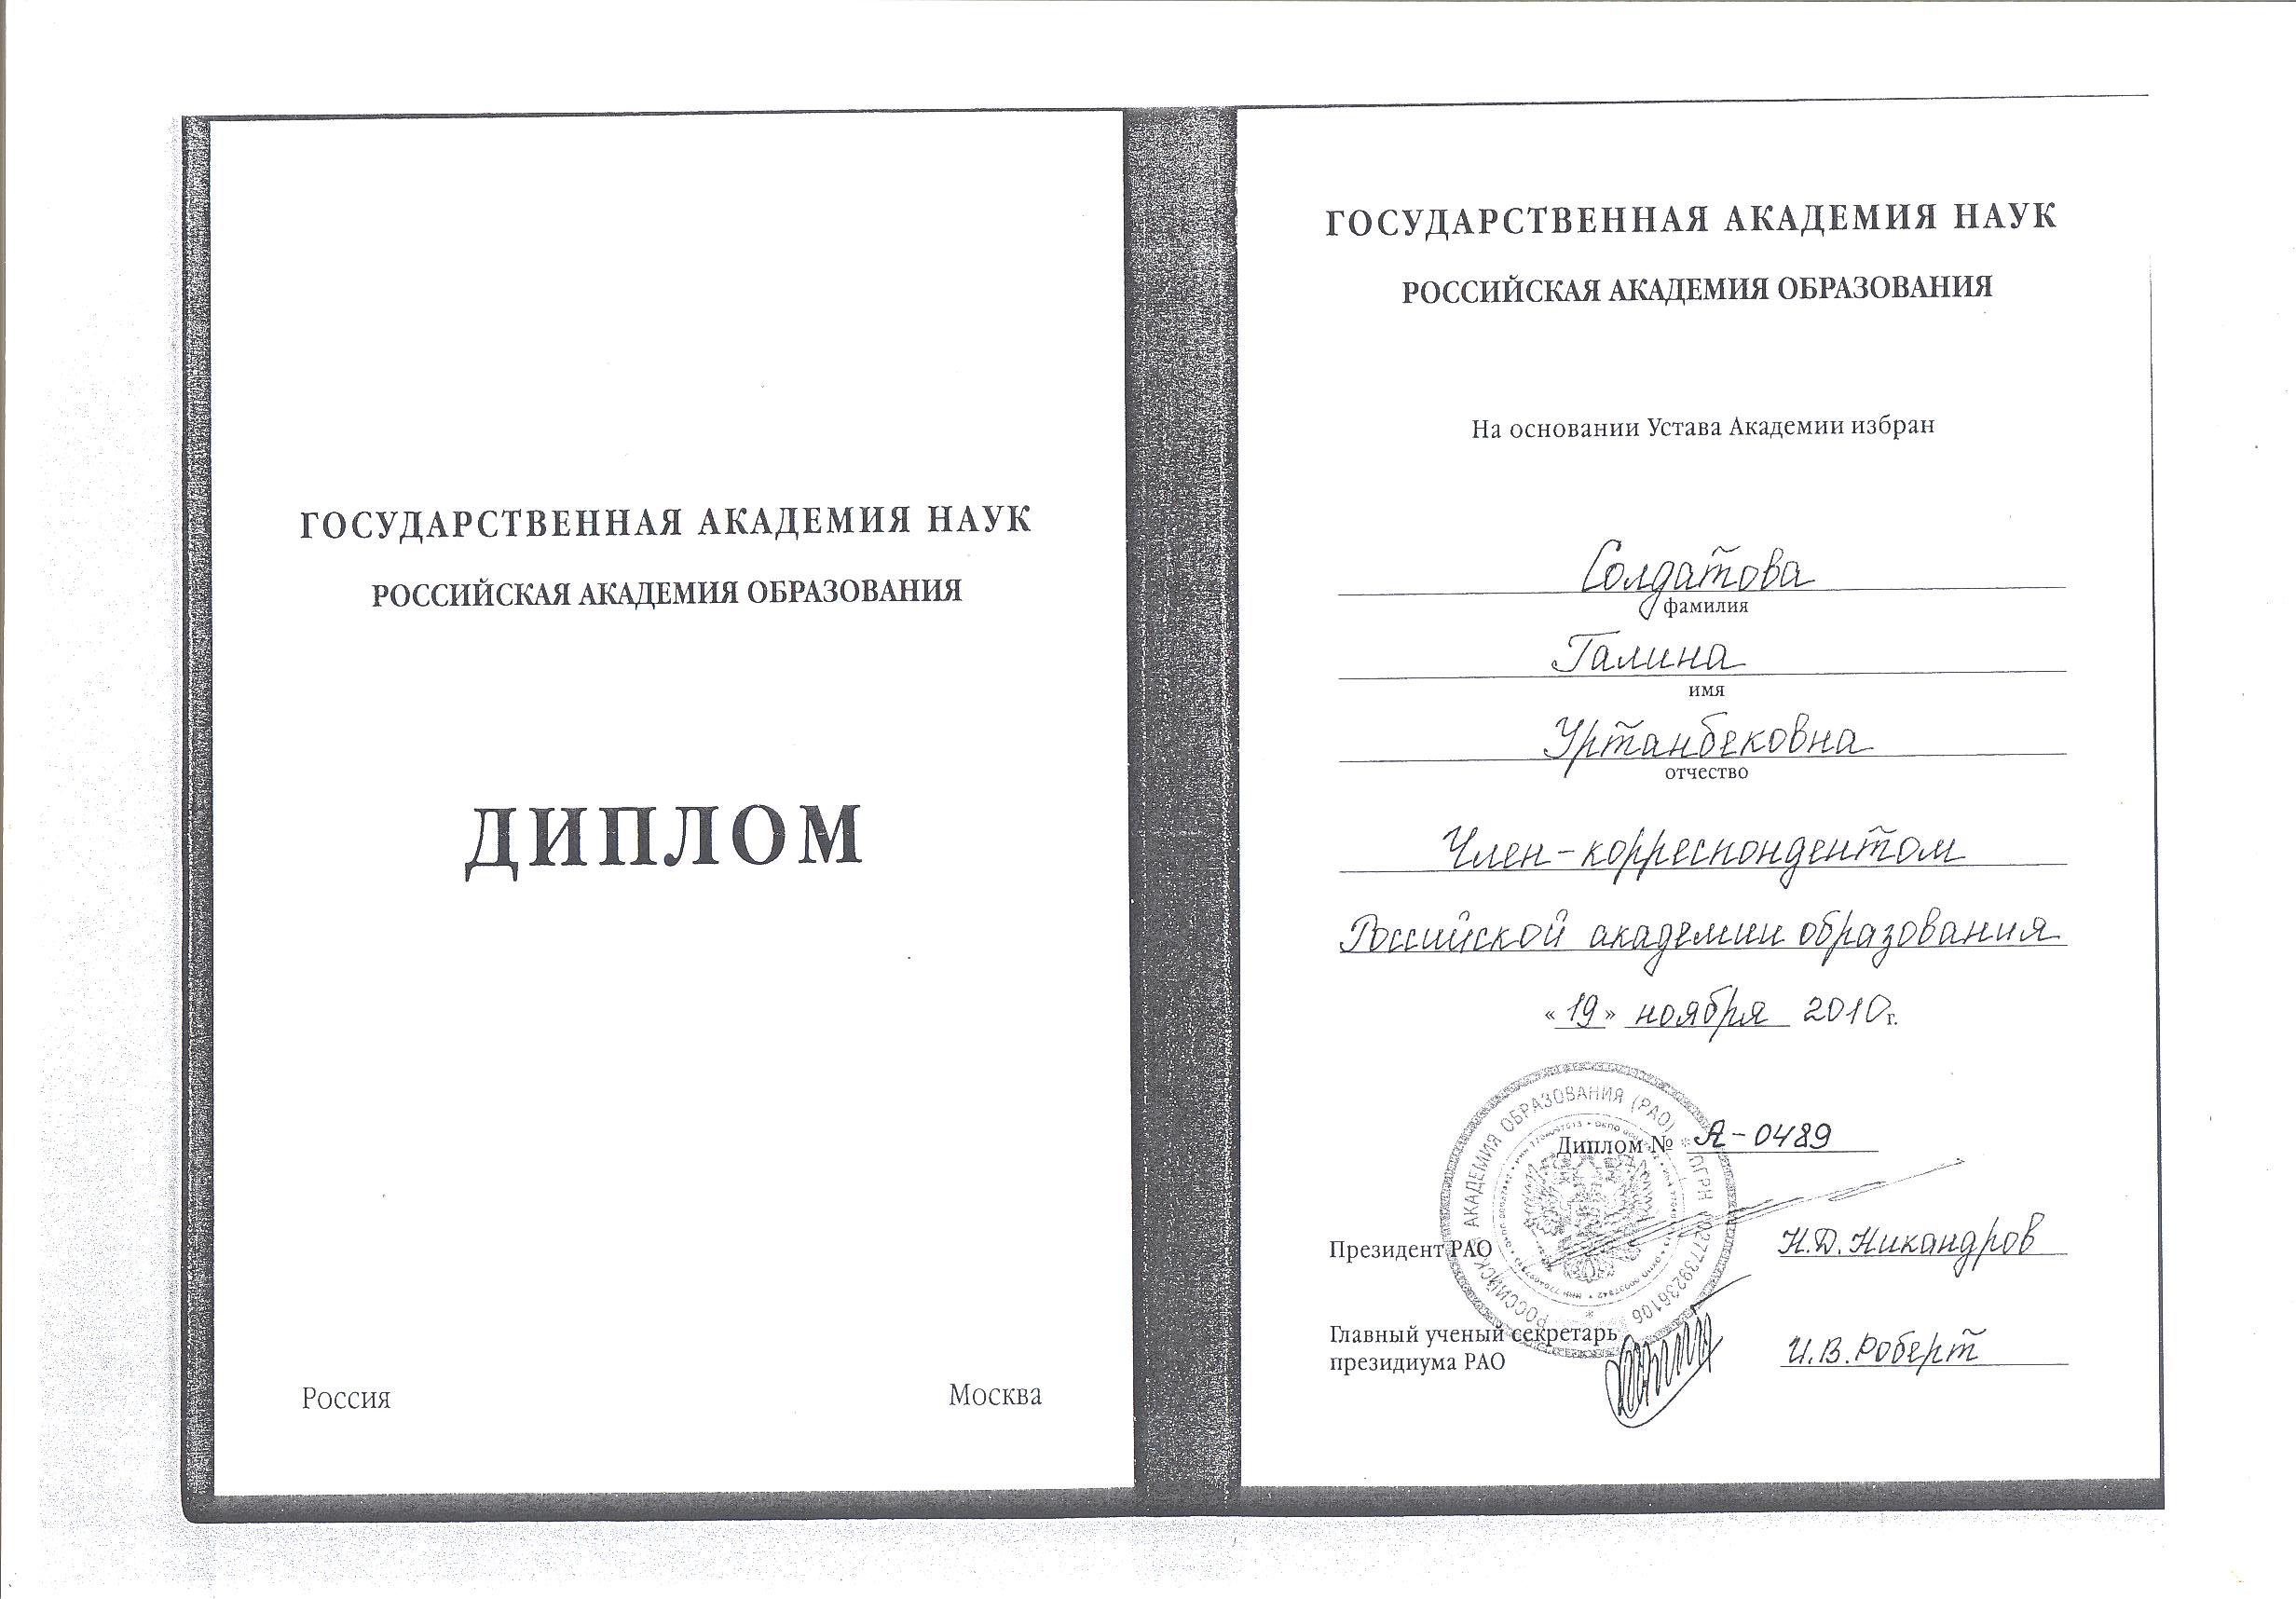 ГОСУДАРСТВЕННАЯ АКАДЕМИЯ НАУК
РОССИЙСКАЯ АКАДЕМИЯ ОБРАЗОВАНИЯ
ДИПЛОМ
Россия
Москва
ГОСУДАРСТВЕННАЯ АКАДЕМИЯ НАУК
РОССИЙСКАЯ АКАДЕМИЯ ОБРАЗОВАНИЯ
На основании Устава Академии избран
Солдатова
фамилия
Галина
имя
Уртанбековна
отчество
Член-корреспондентом
Российской академии образования
«19» ноября 2010г.
Диплом № А-0489
Президент РАО
Н.Д.Никандров
Главный ученый секретарь
президиума РАО
И.В.Роберт
РОССИЙСКАЯ АКАДЕМИЯ ОБРАЗОВАНИЯ (РАО) * ОГРН 1027739236106 *